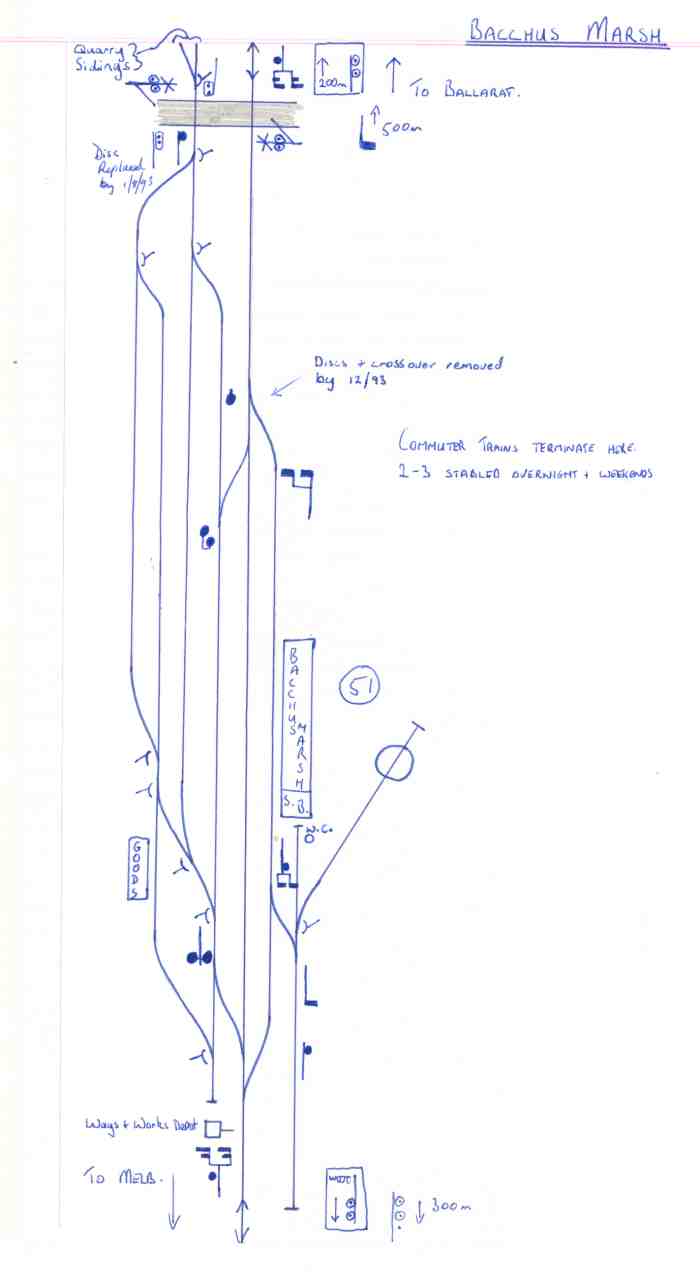 BACCHUS MARSH
Quarry
Sidings
200m
TO BALLARAT.
500m
Disc
Replaced
by 1/8/93
DISCS + CROSSOVER REMOVED
by 12/93
COMMUTER TRAINS TERMINATE HERE.
2-3 STABLED OVERNIGHT + WEEKENDS
BACCHUS
MARSH
S.B.
51
W.C.
GOODS
Ways + Works Depot
TO MELB.
300m